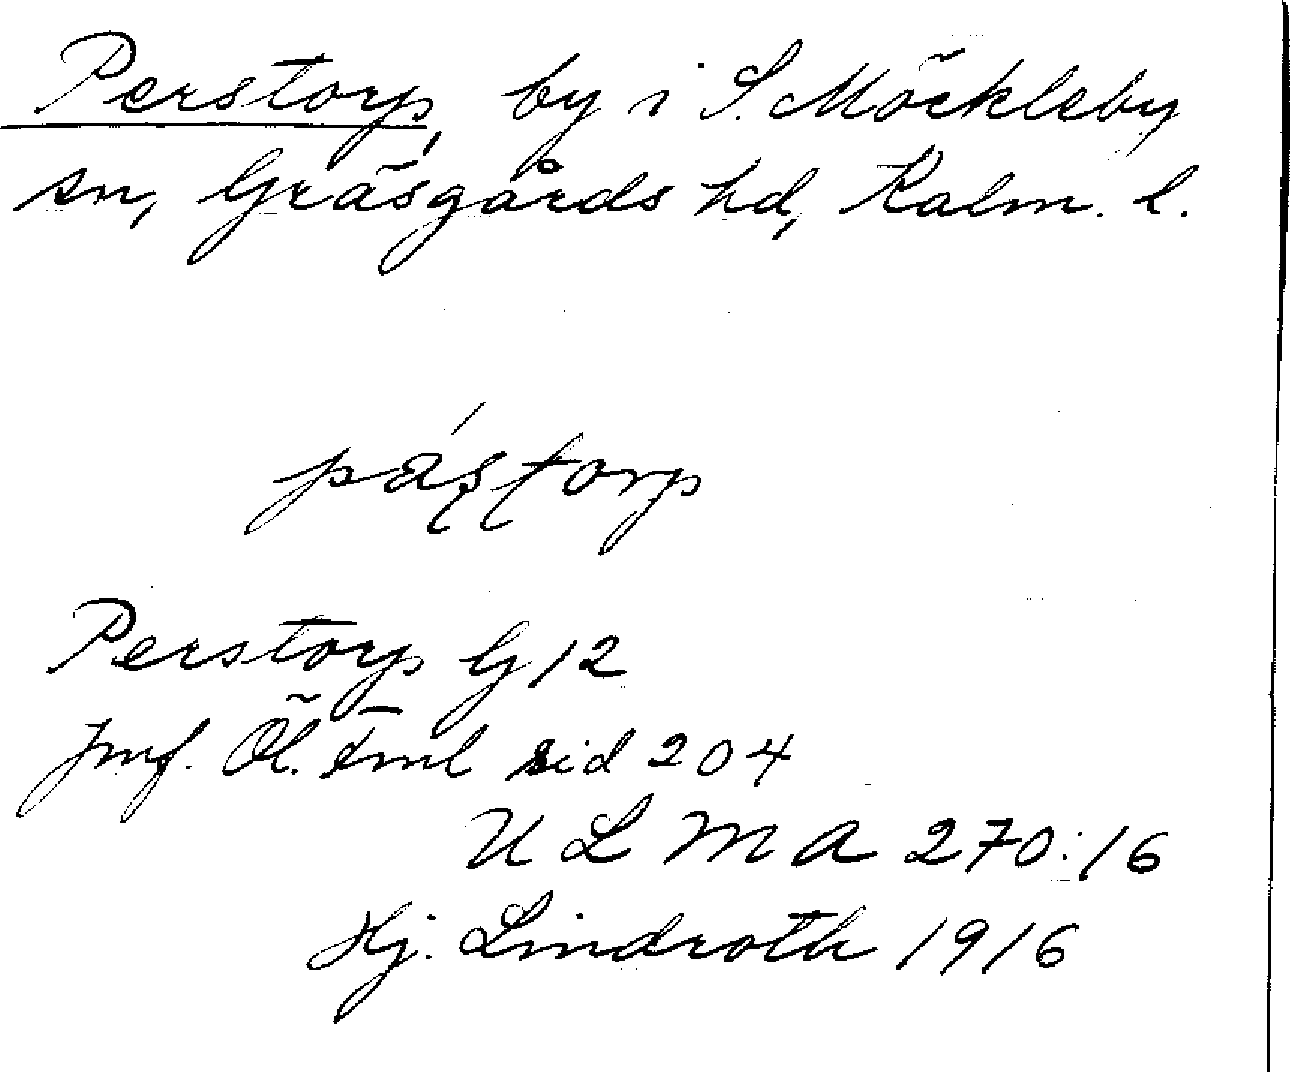 Perstorp, by i S. Möckleby
sn, Gräsgårds hd, Kalm. l.
pás̨ƫorp
Perstorp G 12
Jmf. Öl. fml sid 204
ULMA 270:16
Hj. Lindroth 1916